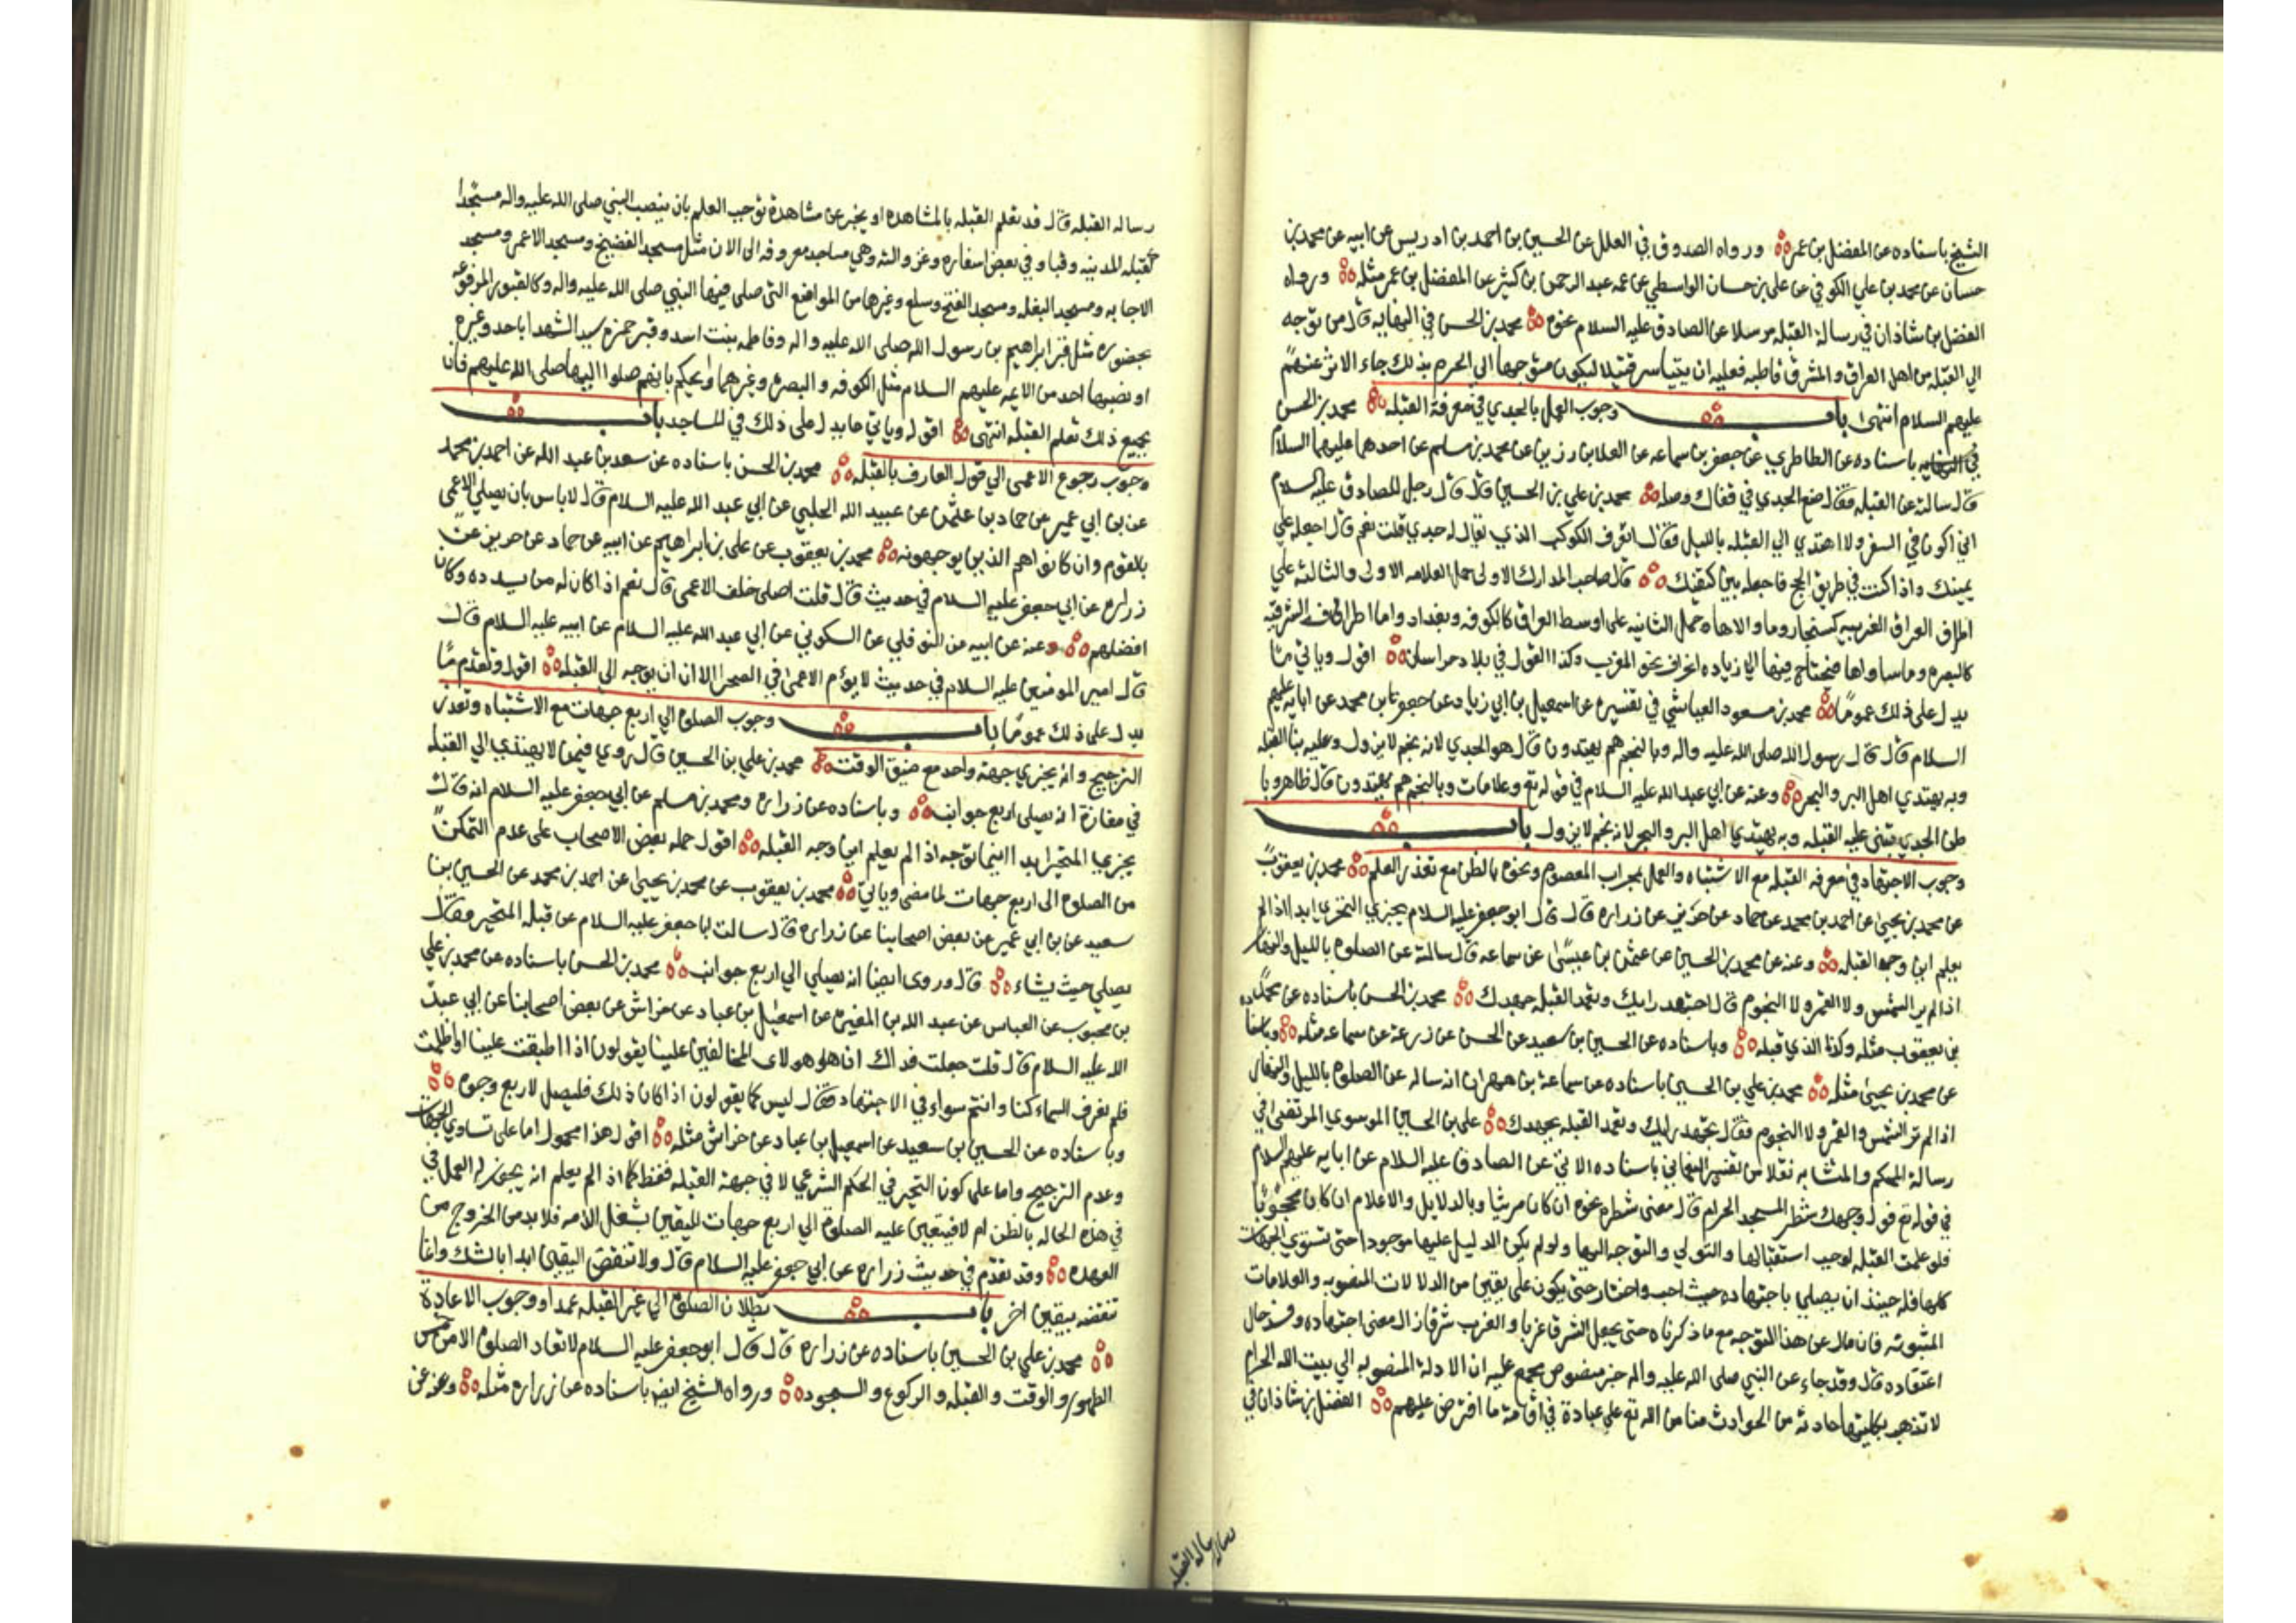 الشيخ باسناده عن المفضل بن عمر ورواه الصدوق في العلل عن الحسين بن احمد بن ادريس عن ابيه عن محمد بن
حسان عن محمد بن علي الكوفي عن علي بن حسان الواسطي عن عمه عبد الرحمن بن كثير عن المفضل بن عمر مثله ورواه
الفضل بن شاذان في رسالة القبله مرسلا عن الصادق عليه السلام نحوه محمد بن الحسن في النهايه قال من توجه
الي القبله من اهل العراق والمشرق قاطبه فعليه ان يتياسر قليلا ليكون متوجها الي الحرم بذلك جاء الاثر عنهم
عليهم السلام انتهى باب وجوب العمل بالجدي في معرفة القبله محمد بن الحسن
باسناده عن الطاطري عن جعفر بن سماعه عن العلا بن رزين عن محمد بن مسلم عن احدهما عليهما السلام
قال سالته عن القبله فقال ضع الجدي في قفاك وصله محمد بن علي بن الحسين قال قال رجل للصادق عليه السلام
اني اكون في السفر ولا اهتدي الي القبله بالليل فقال اتعرف الكوكب الذي يقال له جدي قلت نعم قال اجعله علي
يمينك واذا كنت في طريق الحج فاجعله بين كتفيك قال صاحب المدارك الاولى حمل العلامه الاولى والثالثه علي
اطراف العراق الغربيه كسنجار وما والاها وحمل الثانيه على اوسط العراق كالكوفه وبغداد واما اطرافه الشرقيه
كالبصره وما ساواها فيحتاج فيها الى زياده انحراف نحو المغرب وكذا القول في بلاد خراسان اقول وياتي ما
يدل على ذلك عموما محمد بن مسعود العياشي في تفسيره عن اسمعيل بن ابي زياد عن جعفر بن محمد عن ابايه عليهم
السلام قال قال رسول الله صلى الله عليه واله وبالنجم هم يهتدون قال هو الجدي لانه نجم لا يزول وعليه بنا القبله
وبه يهتدي اهل البر والبحر وعنه عن ابي عبد الله عليه السلام في قوله تع وعلامات وبالنجم هم يهتدون قال ظاهر وبا
طن الجدي تبنى عليه القبله وبه يهتدي اهل البر والبحر لانه نجم لا يزول باب
وجوب الاجتهاد في معرفه القبله مع الاشتباه والعمل بمحراب المعصوم ونحوه بالظن مع تعذر العلم محمد بن يعقوب
عن محمد بن يحيى عن احمد بن محمد عن حماد عن حريز عن زراره قال قال ابو جعفر عليه السلام يجزي التحري ابدا اذا لم
يعلم اين وجه القبله وعنه عن محمد بن الحسين عن عثمن بن عيسى عن سماعه قال سالته عن الصلوه بالليل والنهار
اذا لم ير الشمس ولا القمر ولا النجوم قال اجتهد رايك وتعمد القبله جهدك محمد بن الحسن باسناده عن محمد
بن يعقوب مثله وكذا الذي قبله وباسناده عن الحسين بن سعيد عن الحسن عن زرعه عن سماعه مثله وباسناده
عن محمد بن يحيى مثله محمد بن علي بن الحسين باسناده عن سماعة بن مهران انه ساله عن الصلوه بالليل والنهار
اذا لم تر الشمس والقمر ولا النجوم فقال تجتهد رايك وتعمد القبله بجهدك علي بن الحسين الموسوي المرتضى في
رسالة المحكم والمتشابه نقلا من تفسير النعماني باسناده الاتي عن الصادق عليه السلام عن ابايه عليهم السلام
في قوله تع فول وجهك شطر المسجد الحرام قال معنى شطره نحوه ان كان مرئيا وبالدلايل والاعلام ان كان محجوبا
فلو علمت القبله لوجب استقبالها والتولي والتوجه اليها ولو لم يكن الدليل عليها موجودا حتى تستوي الجهات
كلها فله حينئذ ان يصلي باجتهاده حيث احب واختار حتى يكون على يقين من الدلالات المنصوبه والعلامات
المثبوته فان مال عن هذا التوجه مع ما ذكرناه حتى يجعل الشرق غربا والغرب شرقا زال معنى اجتهاده وفسد حال
اعتقاده قال وقد جاء عن النبي صلى الله عليه واله خبر منصوص مجمع عليه ان الادلة المنصوبه الي بيت الله الحرام
لا تذهب بكليتها حادثه من الحوادث منا من الله تع علي عباده في اقامة ما افترض عليهم الفضل بن شاذان في
رساله القبله
رساله القبله قال قد تعلم القبله بالمشاهده او يخبر عن مشاهدة توجب العلم بان ينصب النبي صلى الله عليه واله مسجدا
كقبله المدينه وقبا وفي بعض اسفاره وغزواته وهي مساجد معروفه الى الان مثل مسجد الفضيخ ومسجد الاعمى ومسجد
الاجابه ومسجد البغله ومسجد الفتح وسلع وغيرها من المواضع التي صلى فيها النبي صلى الله عليه واله وكالقبور المرفوعه
بحضوره مثل قبر ابراهيم بن رسول الله صلى الله عليه واله وفاطمه بنت اسد وقبر حمزه سيد الشهدا باحد وغيره
او نصبها احد من الايمه عليهم السلام مثل الكوفه والبصره وغيرهما واحكم بانهم صلوا اليها صلى الله عليهم فان
بجميع ذلك تعلم القبله انتهى اقول وياتي ما يدل على ذلك في المساجد باب
وجوب رجوع الاعمى الي قول العارف بالقبله محمد بن الحسن باسناده عن سعد بن عبد الله عن احمد بن محمد
عن بن ابي عمير عن حماد بن عثمن عن عبيد الله الحلبي عن ابي عبد الله عليه السلام قال لا باس بان يصلي الاعمى
بالقوم وان كانوا هم الذين يوجهونه محمد بن يعقوب عن علي بن ابراهيم عن ابيه عن حماد عن حريز عن
زراره عن ابي جعفر عليه السلام في حديث قال قلت اصلي خلف الاعمى قال نعم اذا كان له من يسدده وكان
افضلهم وعنه عن ابيه عن النوفلي عن السكوني عن ابي عبد الله عليه السلام عن ابيه عليه السلام قال
قال امير المومنين عليه السلام في حديث لا يؤم الاعمى في الصحرا الا ان يوجه الي القبله اقول وتقدم ما
يدل على ذلك عموما باب وجوب الصلوه الي اربع جهات مع الاشتباه وتعذر
الترجيح وانه يجزي جهة واحد مع ضيق الوقت محمد بن علي بن الحسين قال روي فيمن لا يهتدي الي القبله
في مفازة انه يصلي اربع جوانب وباسناده عن زراره ومحمد بن مسلم عن ابي جعفر عليه السلام انه قال
يجزي المتحير ابدا اينما توجه اذا لم يعلم اين وجه القبله اقول حمله بعض الاصحاب على عدم التمكن
من الصلوه الى اربع جهات لما مضى وياتي محمد بن يعقوب عن محمد بن يحيى عن احمد بن محمد عن الحسين بن
سعيد عن بن ابي عمير عن بعض اصحابنا عن زراره قال سالت ابا جعفر عليه السلام عن قبله المتحير فقال
يصلي حيث يشاء قال وروى ايضا انه يصلي الي اربع جوانب محمد بن الحسن باسناده عن محمد بن علي
بن محبوب عن العباس عن عبد الله بن المغيره عن اسمعيل بن عباد عن خراش عن بعض اصحابنا عن ابي عبد
الله عليه السلام قال قلت جعلت فداك ان هولاى المخالفين علينا يقولون اذا اطبقت علينا او اظلمت
فلم نعرف السماء كنا وانتم سواء في الاجتهاد فقال ليس كما يقولون اذا كان ذلك فليصل لاربع وجوه
وباسناده عن الحسين بن سعيد عن اسمعيل بن عباد عن خراش مثله اقول هذا محمول اما على تساوي الجهات
وعدم الترجيح واما على كون التحير في الحكم الشرعي لا في جهة القبله فقط كما اذا لم يعلم انه يجوز له العمل في
في هذه الحاله بالظن ام لا فيتعين عليه الصلوة الي اربع جهات لليقين بشغل الذمه فلا بد من الخروج من
العهده وقد تقدم في حديث زراره عن ابي جعفر عليه السلام قال ولا تنقض اليقين ابدا بالشك وانما
تنقضه بيقين اخر باب بطلان الصلوة الي غير القبله عمدا ووجوب الاعادة
محمد بن علي بن الحسين باسناده عن زراره قال قال ابو جعفر عليه السلام لا تعاد الصلوه الا من خمس
الطهور والوقت والقبله والركوع والسجود ورواه الشيخ ايضا باسناده عن زراره مثله وعنه عن